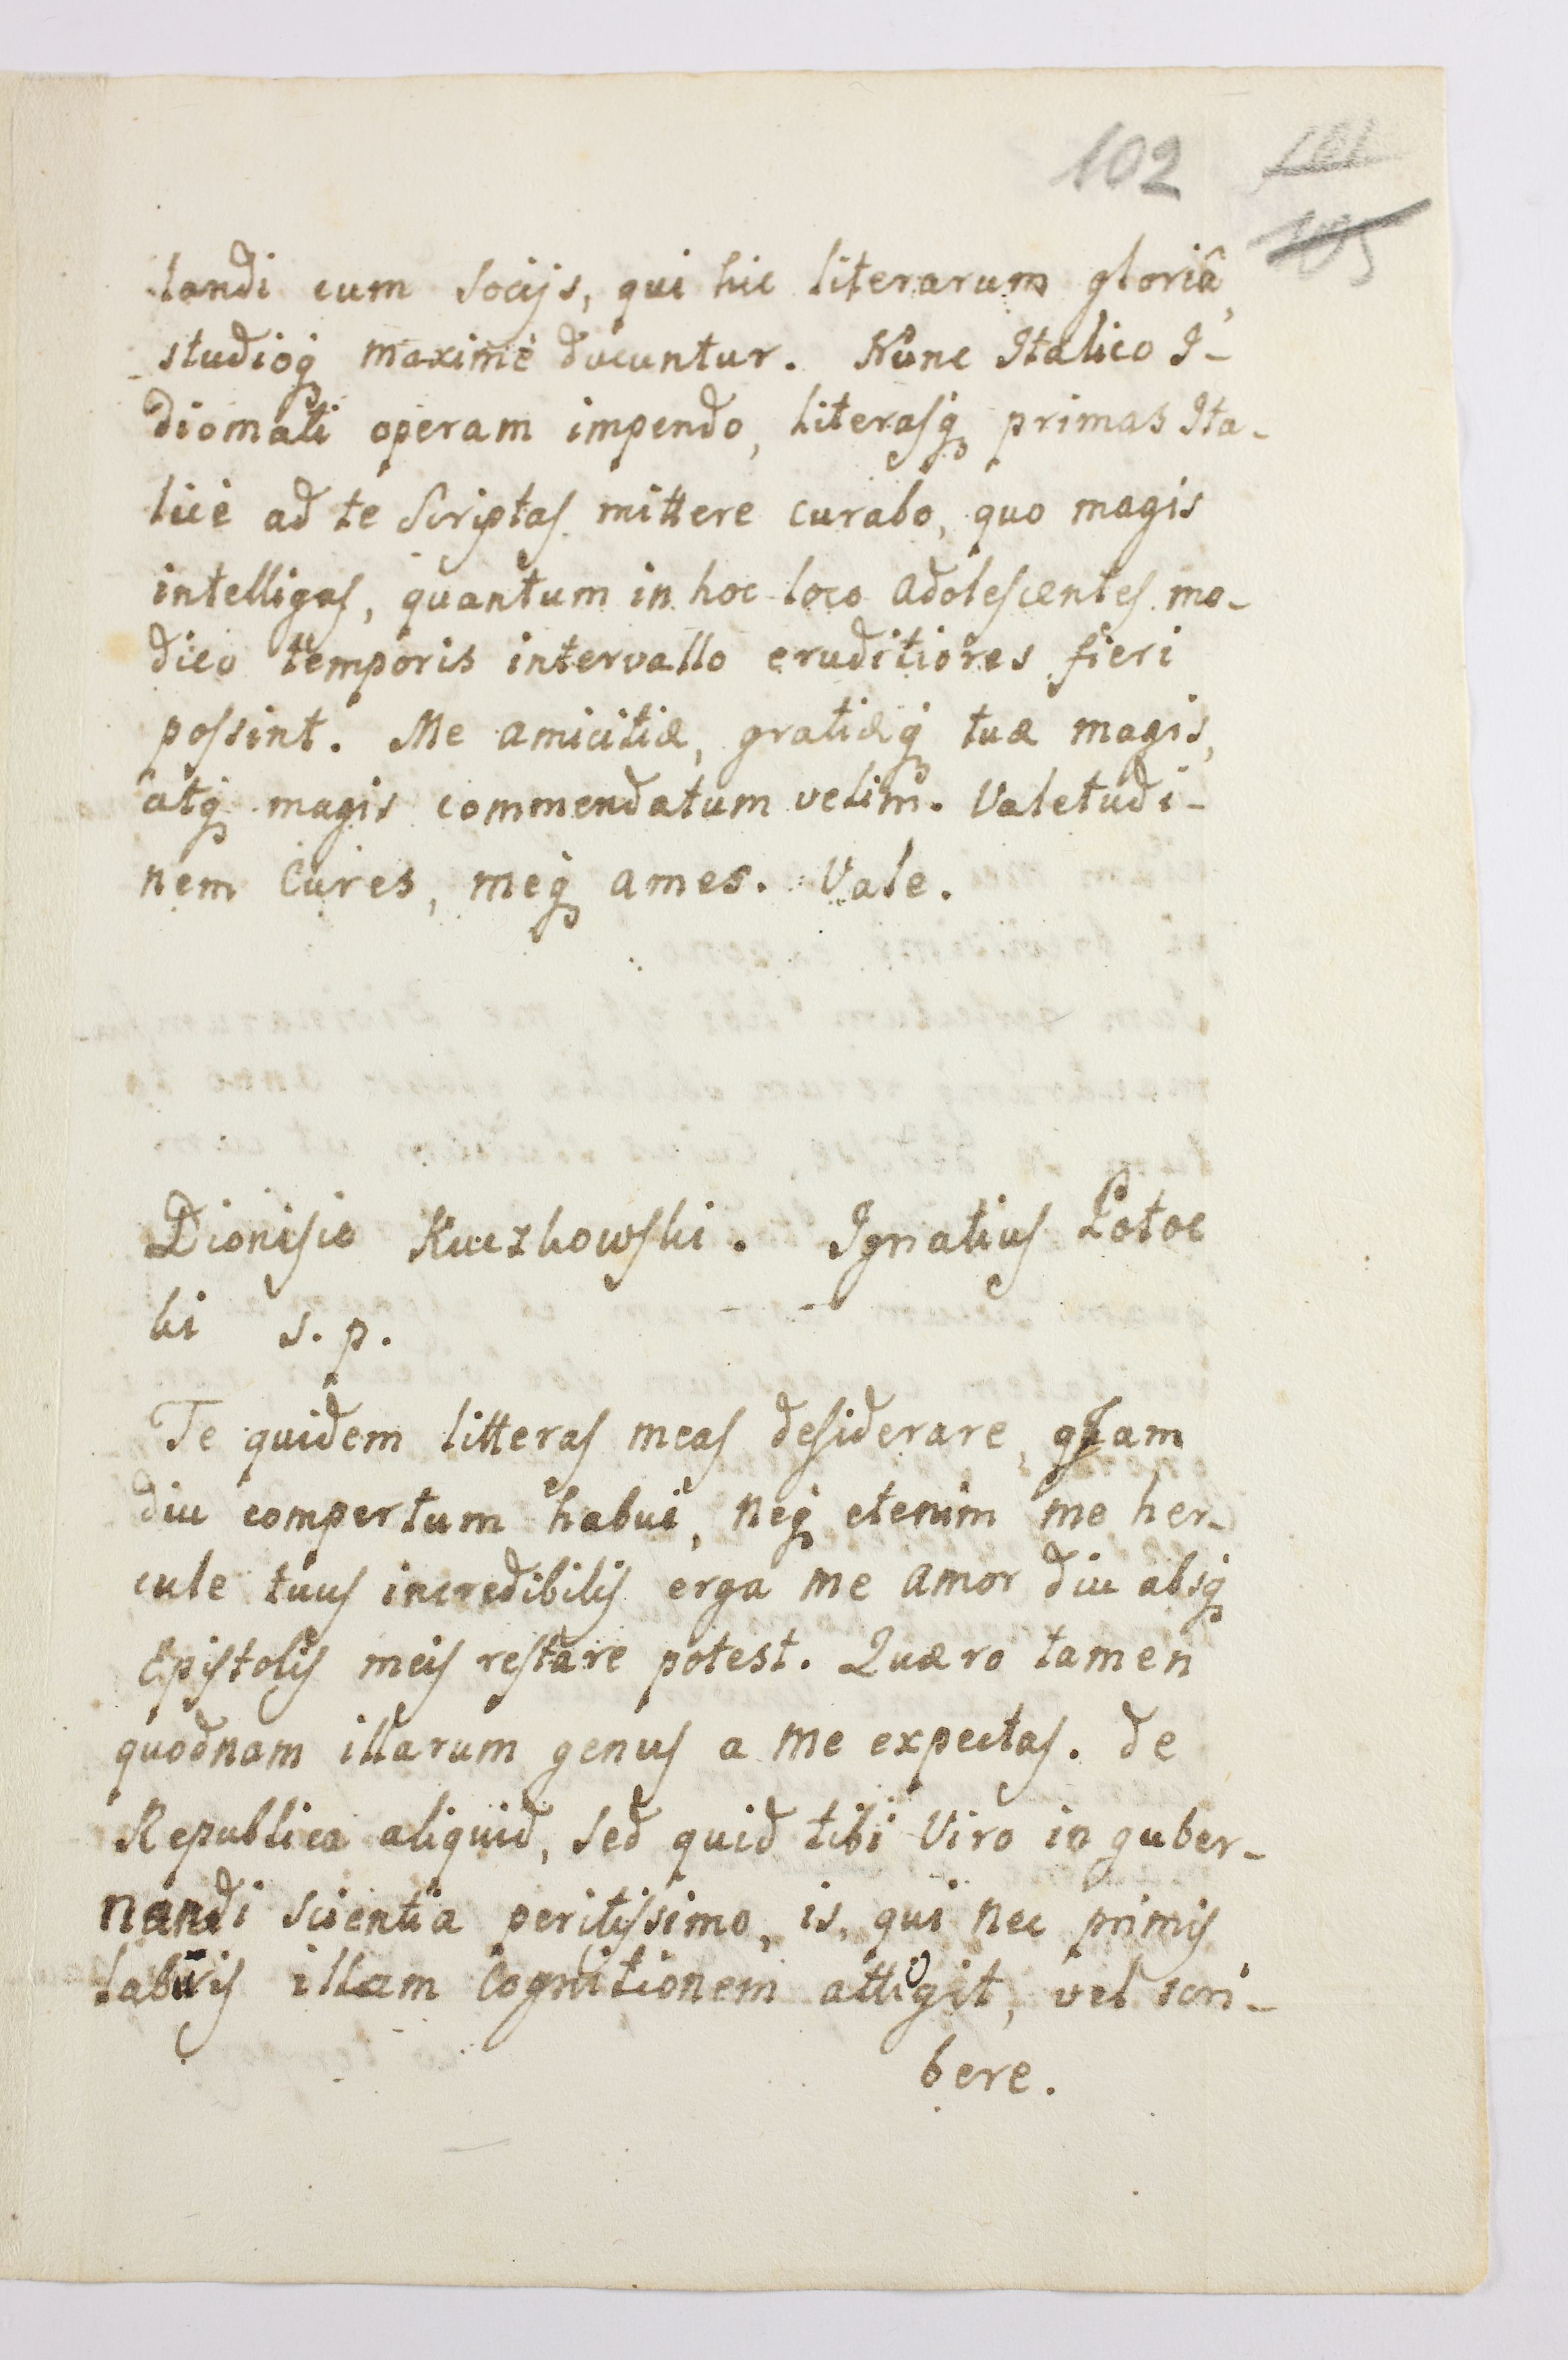 102 101
105
landi cum Socijs, qui hic literarum gloriâ,
studioq́ꝫ maximè ducuntur. Nunc Italico I-
diomati operam impendo, literasq́ꝫ primas Ita-
licè ad te Scriptas mittere curabo, quo magis
intelligas, quantum in hoc loco adolescentes mo-
dico temporis intervallo eruditiores fieri
possint. Me amicitiæ, gratiæq́ꝫ tuæ magis,
atq́ꝫ magis commendatum velim. Valetudi-
nem Cures, meq́ꝫ ames. Vale.
Dionisio Kuczkowski. Ignatius Potoc
ki s. p.
Te quidem litteras meas desiderare, qJam
diu compertum habui, neq́ꝫ etenim me her-
cule tuus incredibilis erga me amor diu absq́ꝫ
Epistolis meis restare potest. Quæro tamen
quodnam illarum genus a me expectas. de
Republica aliquid, sed quid tibi Viro in guber-
nandi scientia peritissimo, is, qui nec primis
labiis illam Cognitionem attigit, vel scri-
bere.